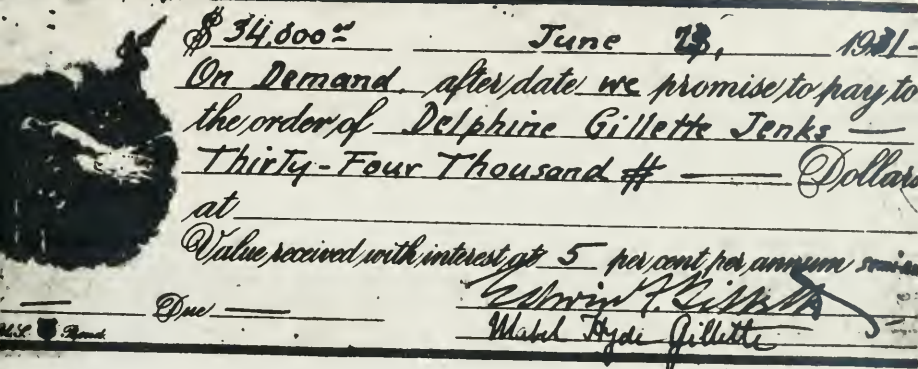 $ 34,000⁰⁰ June 23, 1931-
On Demand, after date we promise to pay to
the order of Delphine Gillette Jenks —
Thirty-Four Thousand # — Dollars
at
Value received with interest at 5 per cent per annum semi
Due —
Mabel Hyde Gillette